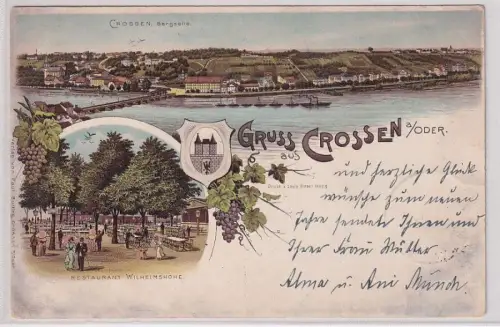 CROSSEN. Bergseite.
GRUSS aus CROSSEN a/ODER.
und herzliche Glück
wünsche zum neuen
Jahre sendet Ihnen und
Ihrer Frau Mutter
Alma u. Ani Münch.
RESTAURANT WILHELMSHÖHE